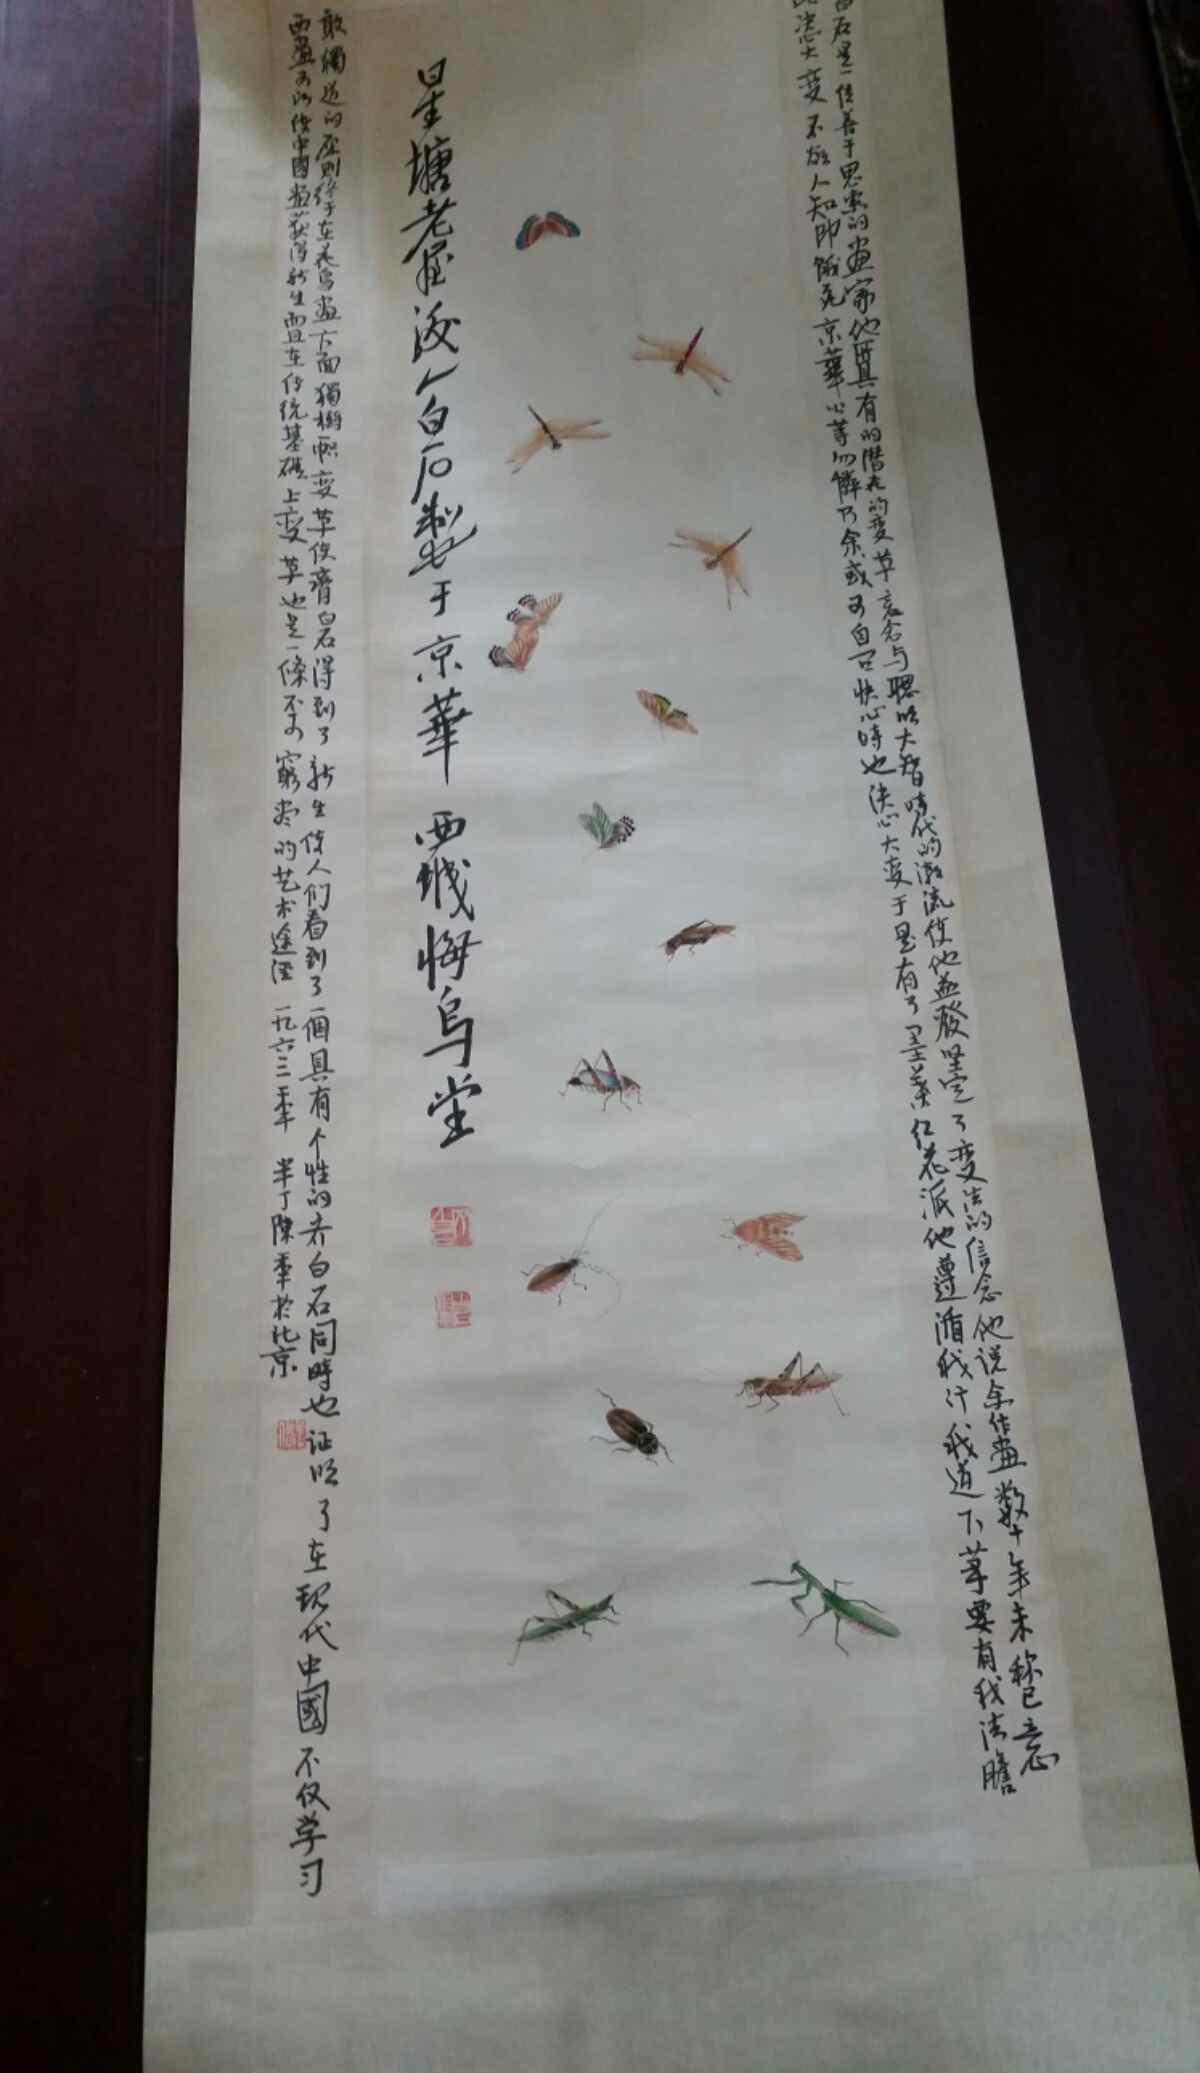 白石是一位善于思索的画家他既具有的潜在的变革意念与聪明大智時代的激流使他益發坚定了变法的信念他说余作畫数十年未称己意
此决大变不欲人知即饿死京華公等勿憐乃余或可自问快心時也决心大变于是有了墨葉红花派他遵循我行我道下筆要有我法膽
星塘老屋後人白石製于京華西城悔乌堂
敢獨造的原则终于在花鸟画方面獨樹一幟变革使齊白石得到了新生使人们看到了一個具有个性的齐白石同時也证明了在现代中國不仅学习
西畫可以使中國畫获得新生而且在传统基礎上变革也是一條不可窮尽的艺术途径一九六三年半丁陳年於北京